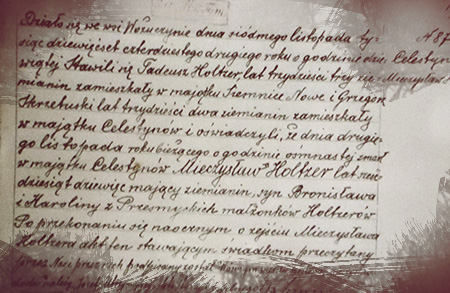 Działo się we wsi Wożuczynie dnia siódmego listopada ty- N 87
siąc dziewięćset czterdziestego drugiego roku o godzinie dzie- Celestyn
wiątej Stawili się Tadeusz Holtzer lat trzydzieści trzy zie- Mieczysław
mianin zamieszkały w majątku Siemnice Nowe i Grzegorz
Skrzetuski lat trzydzieści dwa ziemianin zamieszkały
w majątku Celestynów i oświadczyli, że dnia drugie-
go listopada roku bieżącego o godzinie ósmnastej zmarł
w majątku Celestynów Mieczysław Holtzer lat sześć-
dziesiąt dziewięć mający ziemianin, syn Bronisława
i Karoliny z Przesmyckich małżonków Holtzerów
Po przekonaniu się naocznym o zejściu Mieczysława
Holtzera akt ten stawającym świadkom przeczytany
przez Nas